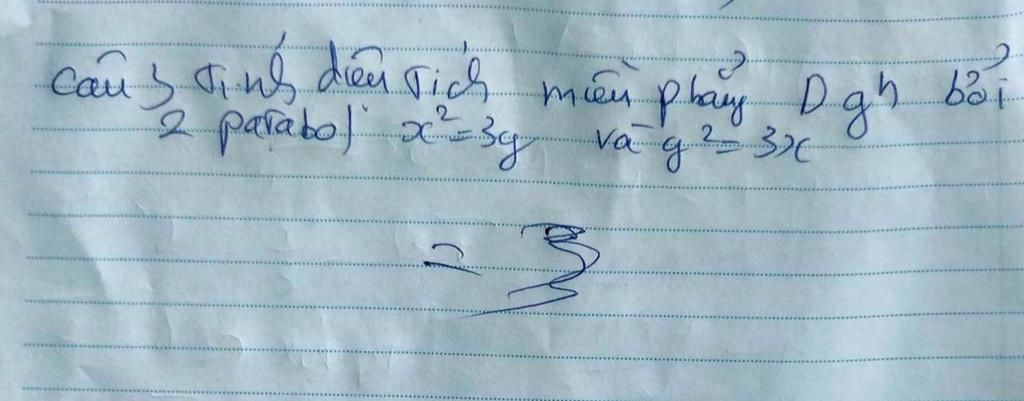 Câu 3 Tính diện tích miền phẳng D gh bởi
2 parabol x² = 3y và y² = 3x
= 3